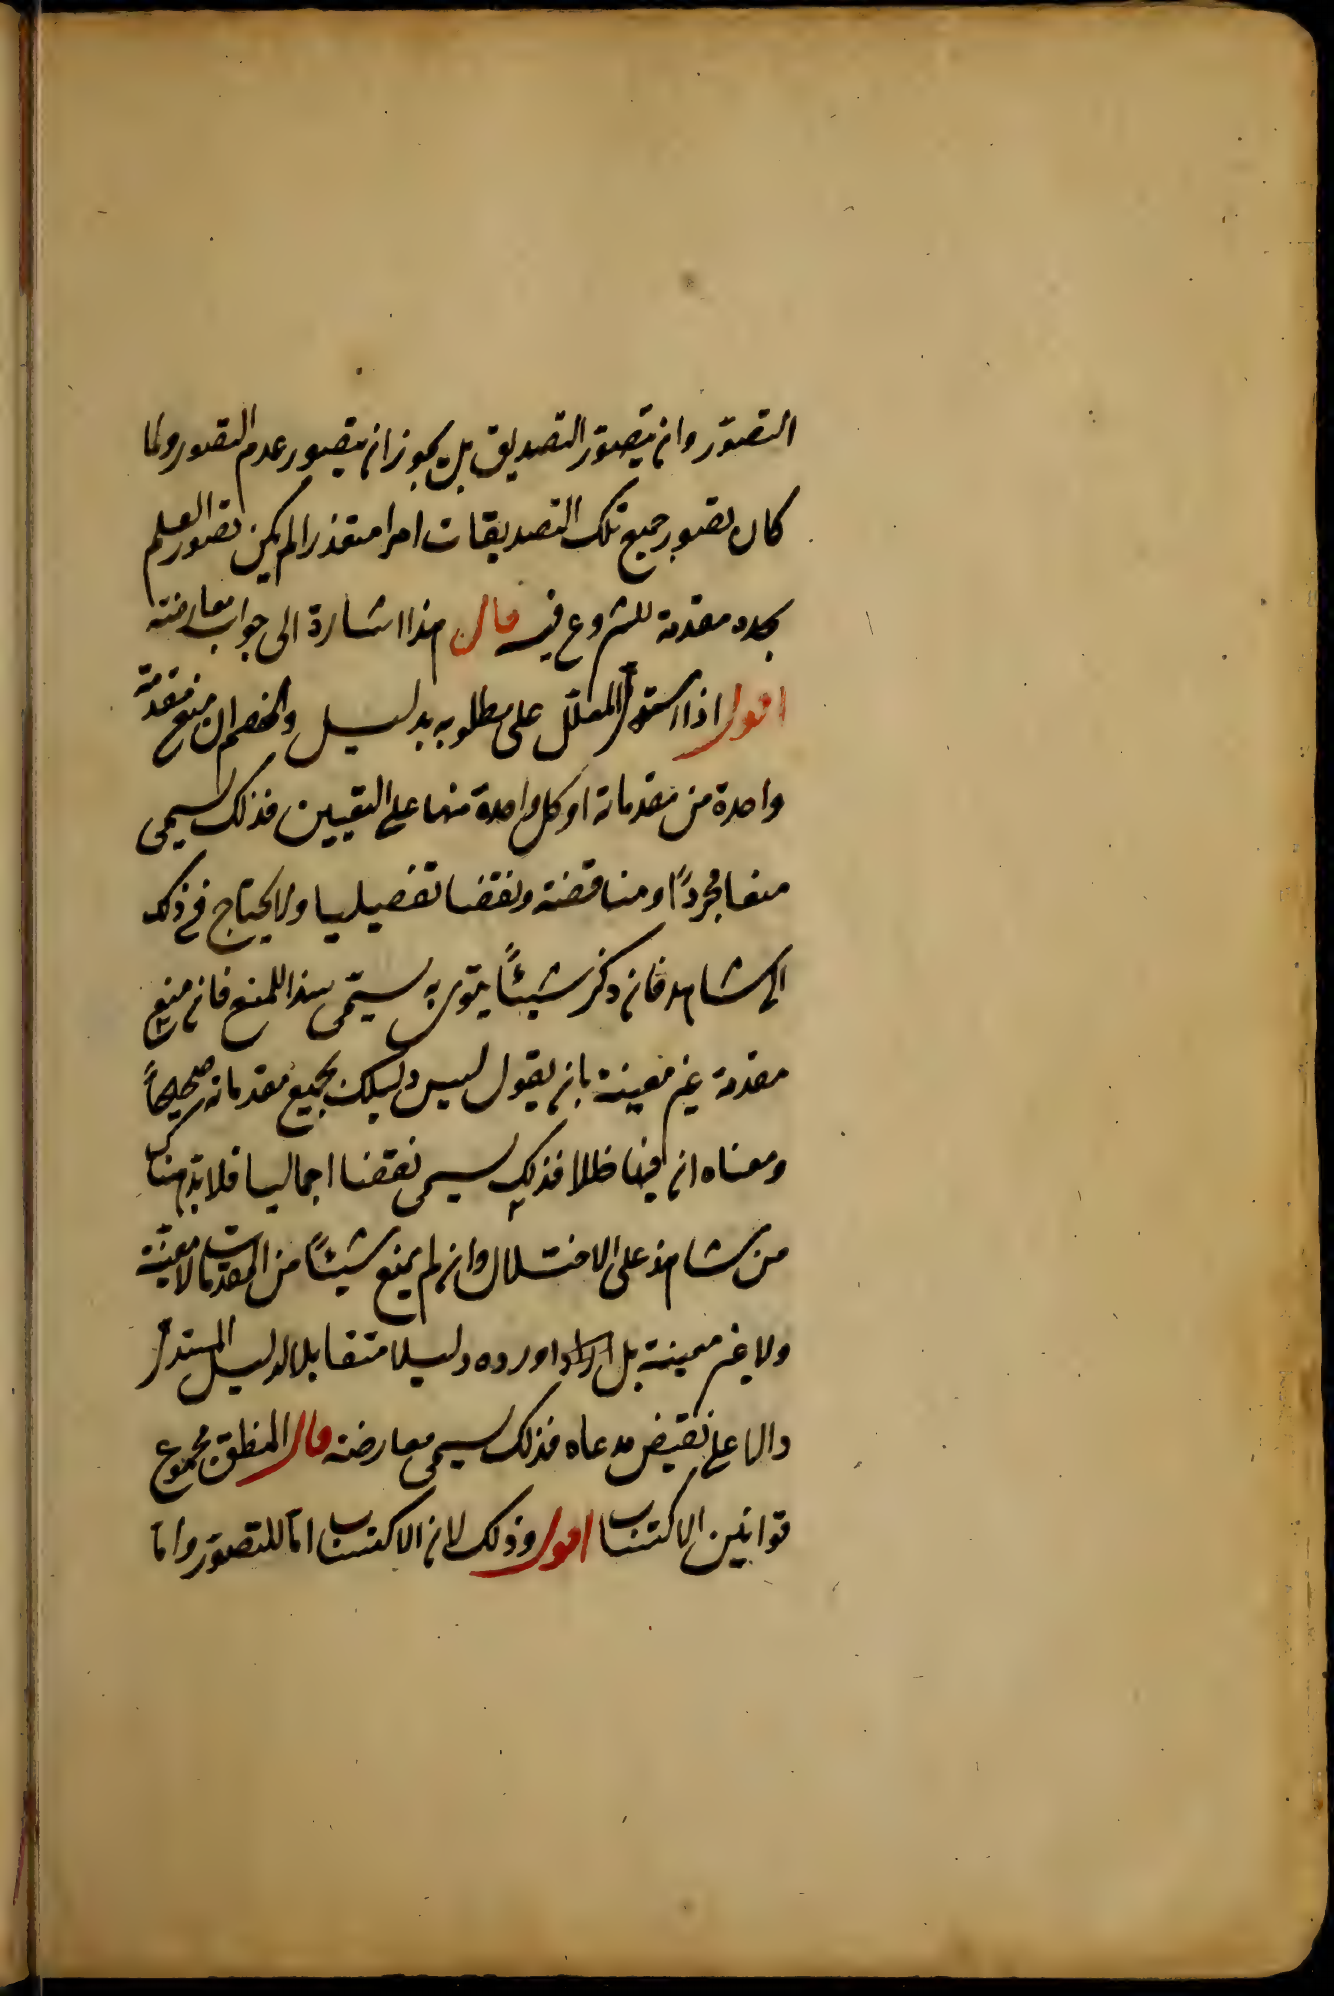 التصوّر وان يتصوّر التصديق بل يجوز ان يتصور عدم التصور ولما
كان تصور جميع تلك التصديقات امرا متعذرا لم يكن تصور العلم
بحده مقدمة للشروع فيه قال هذا اشارة الى جواب معارضة
اقول اذا استدل المعلل على مطلوبه بدليل والخصم ان منع مقدمة
واحدة من مقدماته او كل واحدة منها على التعيين فذلك يسمى
منعا مجردًا ومناقضة ونقضا تفصيليا ولا يحتاج في ذلك
الى شاهد فان ذكر شيئًا يتقوى به يسمّى سندا للمنع فان منع
مقدمة غير معينة بان يقول ليس دليلك بجميع مقدماته صحيحاً
ومعناه ان فيها خللا فذلك يسمى نقضا اجماليا فلا بدّ هناك
من شاهد على الاختلال وان لم يمنع شيئًا من المقدمات لا معيّنة
ولا غير معينة بل اورد دليلا متقابلا لدليل المستدل
دالا على نقيض مدعاه فذلك يسمى معارضة قال المنطق مجموع
قوانين الاكتساب اقول وذلك لان الاكتساب امّا للتصوّر وامّا